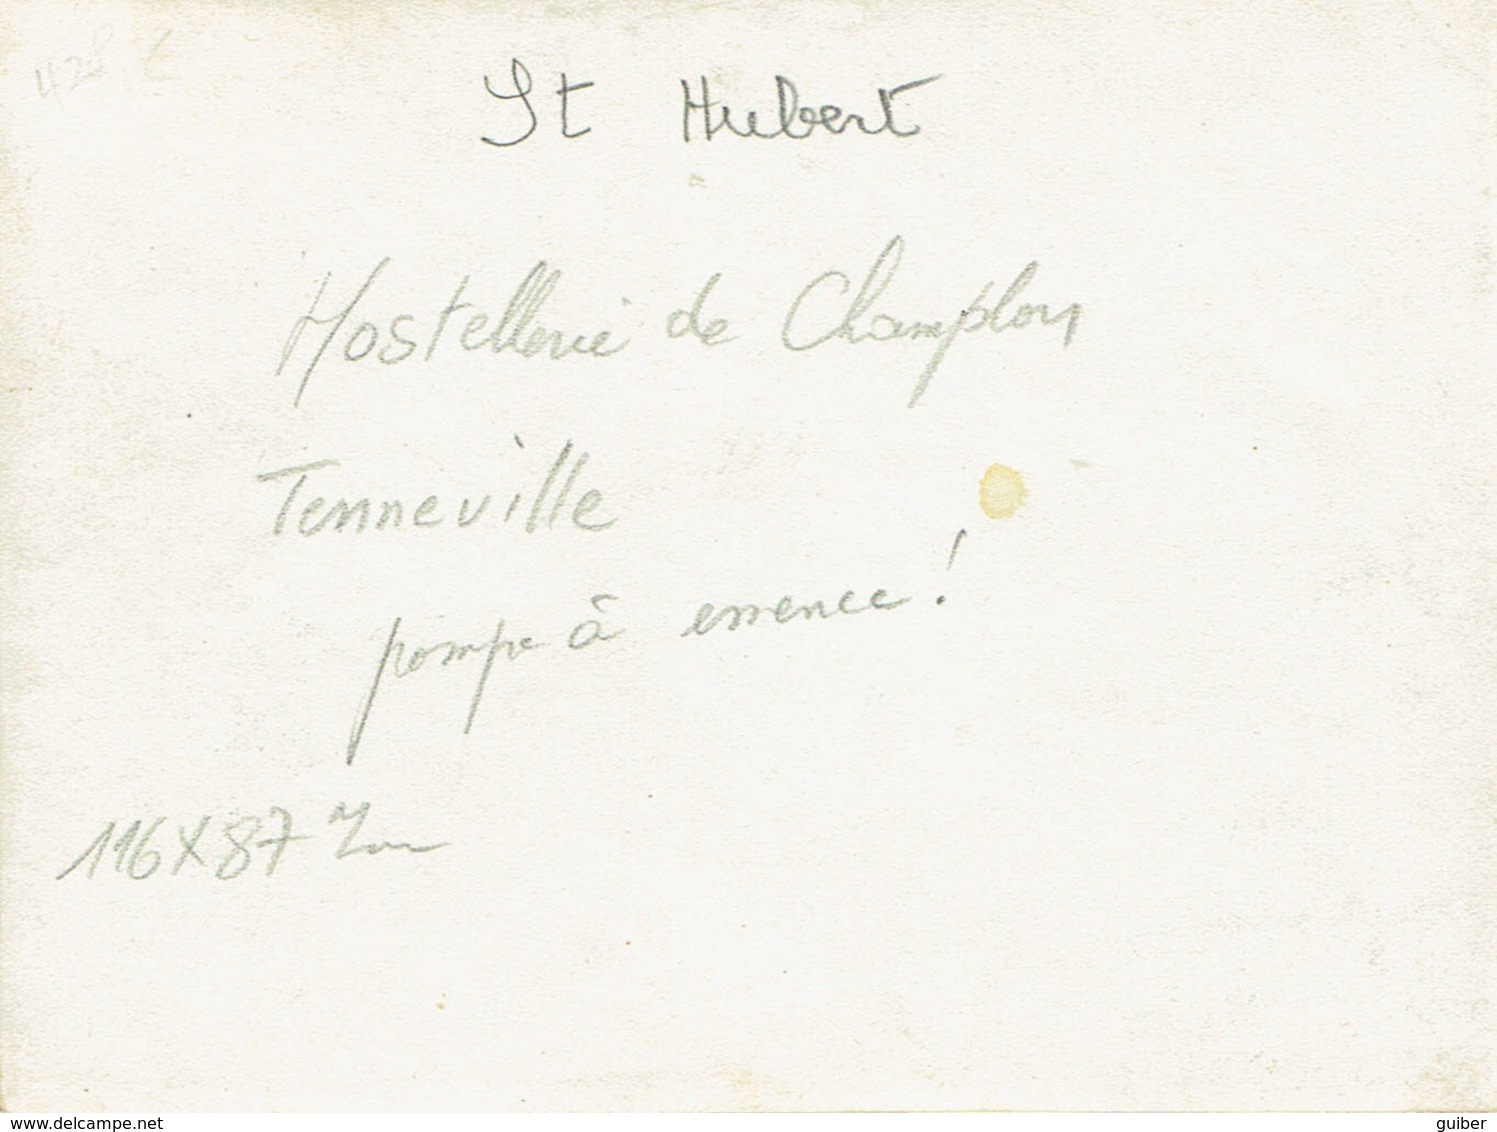 428
St Hubert
Hostellerie de Champlon
Tenneville
pompe à essence !
116 X 87
www.delcampe.net
guiber